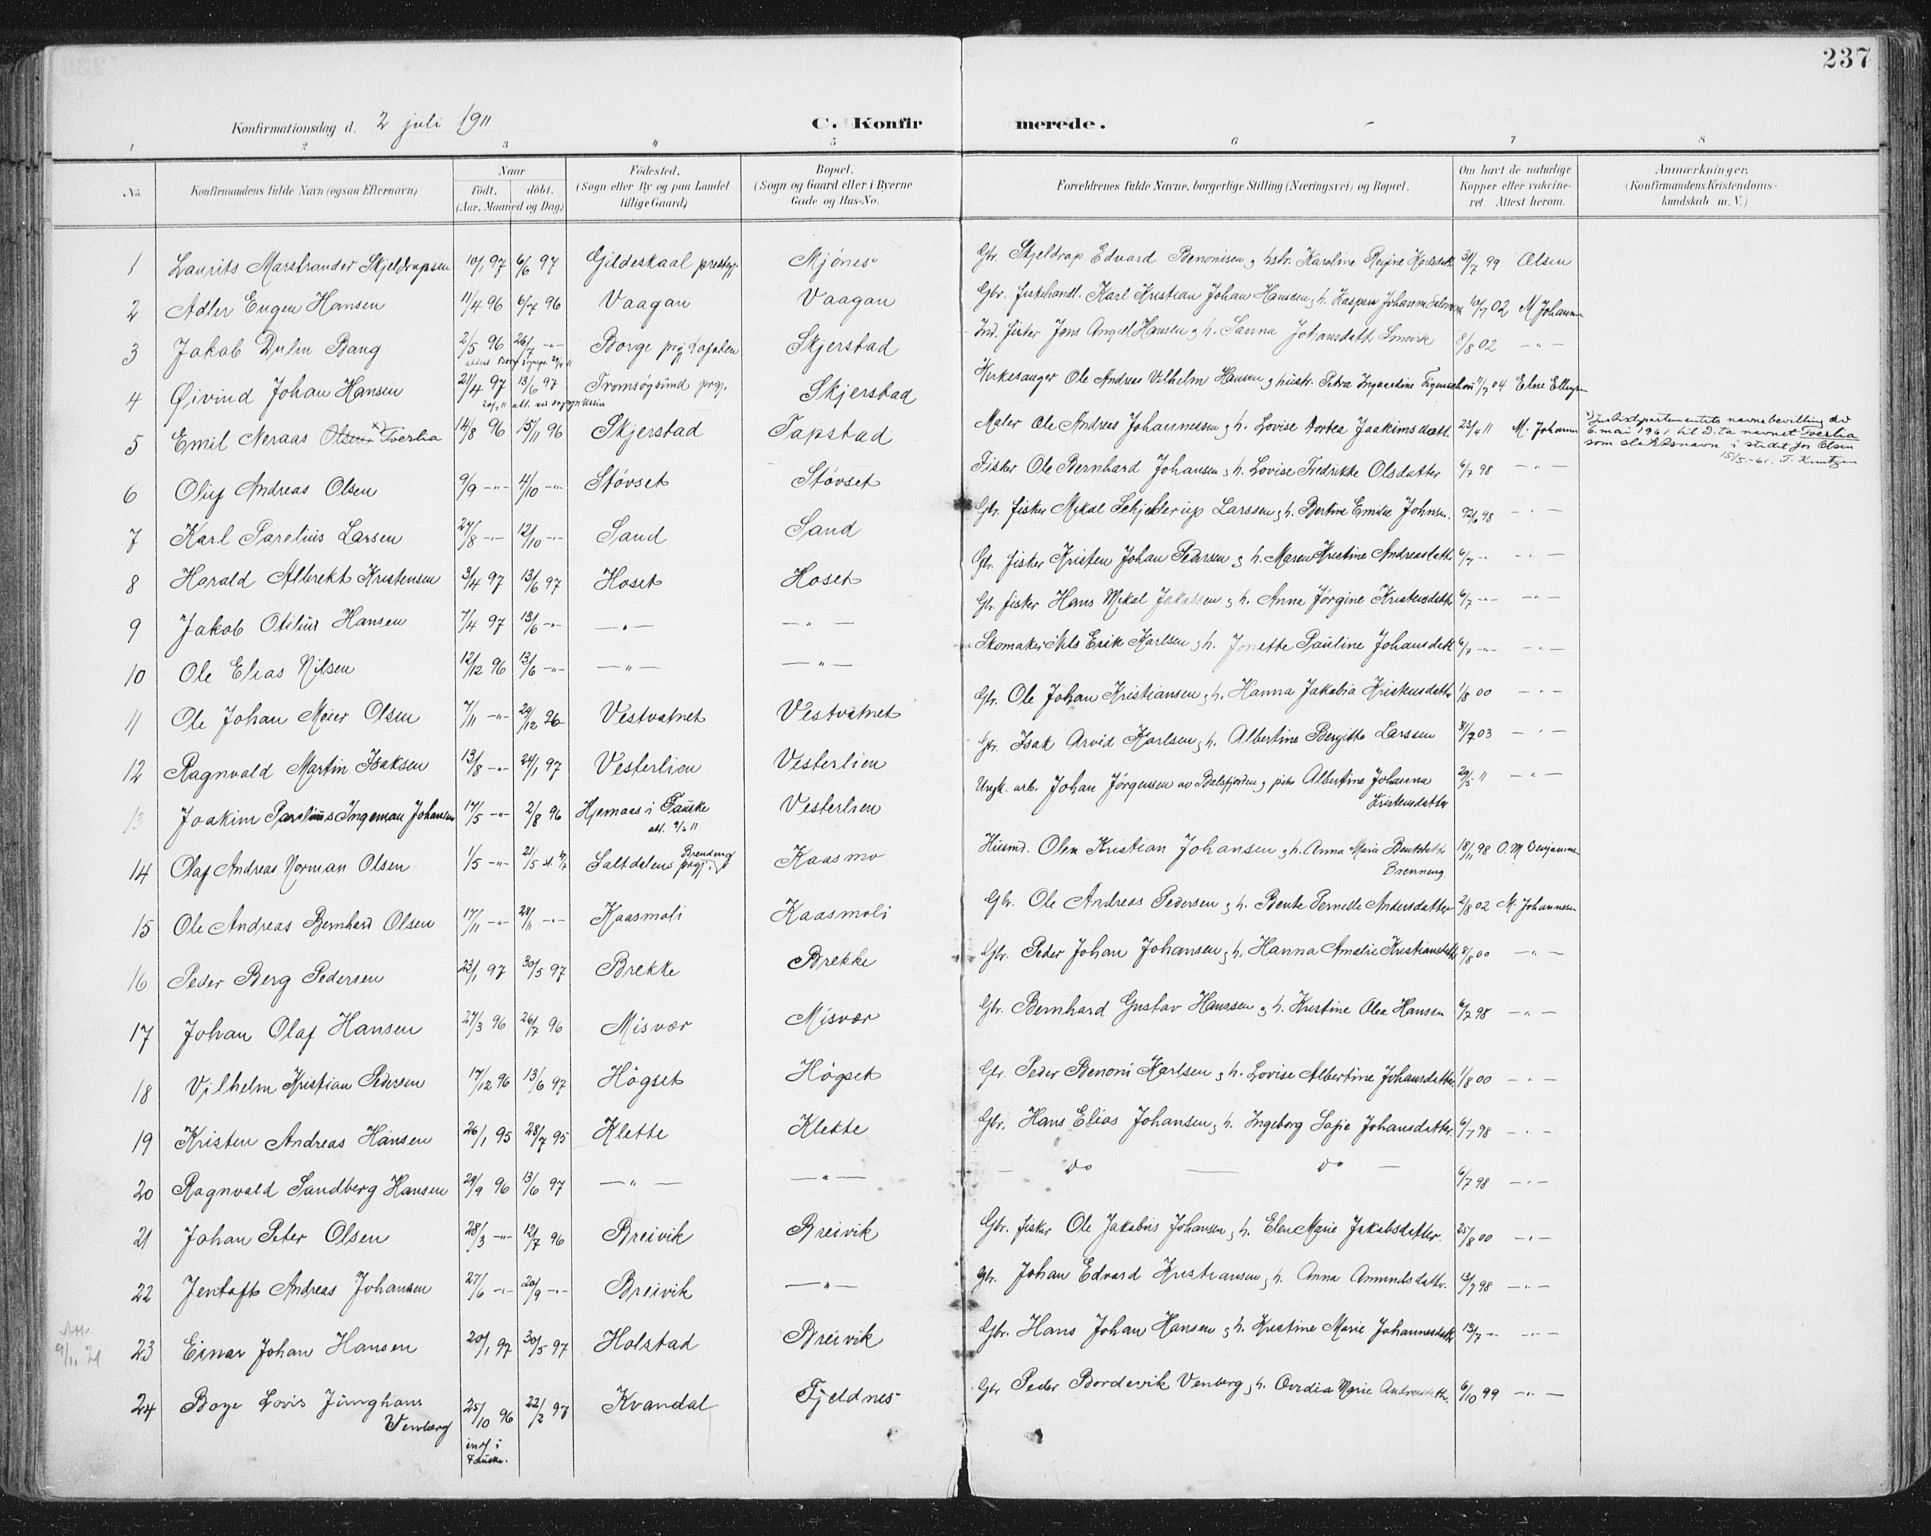 237
Konfirmationsdag d. 2 juli 1911 C. Konfirmerede.
1 2 3 4 5 6 7 8
No. Konfirmandens fulde Navn (ogsaa Efternavn) Naar født. døbt. (Aar, Maaned og Dag) Fødested. (Sogn eller By og paa Landet tillige Gaard) Bopæl. (Sogn og Gaard eller i Byerne Gade og Hus-No. Forældrenes fulde Navne, borgerlige Stilling (Næringsvei) og Bopæl. Om havt de naturlige Kopper eller vakcineret Attest herom. Anmærkninger. (Konfirmandens Kristendomskundskab m. V.)
1 Laurits Marstrander Skjeldrupsen 10/1 97 6/6 97 Gildeskaal prestgj. Mjönes Gbr. Skjeldrup Edvard Benonisen & hstr. Karoline Regine Karlsdatt 31/7 99 Olsen
2 Adler Eugen Hansen 11/4 96 6/7 96 Vaagan Vaagan Gbr. fiskehandl. Karl Kristian Johan Hansen & h. Kaspara Johanna 10/7 02 M Johannsen
3 Jakob Dulin Bang 2/5 96 26/7 -"- Borge prgj Lofoten Skjerstad Ind. fisker Jens Angel Hansen & h. Sanna Johansdatter 8/8 02 -"-
4 Øivind Johan Hansen 21/4 97 13/6 97 Tromsøysund prgj. Skjerstad Kirkesanger Ole Andreas Vilhelm Hansen & hustr. Petra Ingvardine Figenschou 11/7 04 Elne Ellingsen
5 Emil Neraas Olsen x) Tverlia 14/8 96 15/11 96 Skjerstad Tapstad Maler Ole Andreas Johannessen & h. Lovise Dortea Joakimsdatt. 23/4 11 M. Johann x) Justisdepartementets navnebevilling av
6. mai 1961 til d.ta navnet Tverlia
som slektsnavn i stedet for Olsen
15/5-61. T. Knutzen
6 Oluf Andreas Olsen 9/9 -"- 4/10 -"- Støvset Støvset Fisker Ole Bernhard Johansen & h. Lovise Fredrikke Olsdatter 6/7 98 -"-
7 Karl Parelius Larsen 24/8 -"- 12/10 -"- Sand Sand Gbr. fisker Mikal Schjelderup Larssen & h. Bertine Emilie Johnsen. 98 -"-
8 Harald Albrekt Kristensen 3/4 97 13/6 97 Hoset Hoset Gbr. fisker Kristen Johan Pedersen & h. Maren Kristine Andreasdatt 6/7 -"- -"-
9 Jakob Otilius Hansen 7/4 97 13/6 -"- -"- -"- Gbr fisker Hans Mikal Jakobsen & h. Anna Jörgine Kristensdatter 6/7 -"- -"-
10 Ole Elias Nilsen 12/12 96 13/6 -"- -"- -"- Skomaker Nils Erik Karlsen & h. Jonette Pauline Johansdatt 6/7 -"- -"-
11 Ole Johan Meier Olsen 7/11 -"- 29/12 96 Vestvatnet Vestvatnet Gbr. Ole Johan Kristiansen & h. Hanna Jakobia Kristensdatter 1/8 00 -"-
12 Ragnvald Martin Isaksen 13/8 -"- 24/1 97 Vesterlien Vesterlien Gbr. Isak Arvid Karlsen & h. Albertine Bergitte Larssen 31/7 03 -"-
13 Joakim Parelius Ingeman Johansen 17/5 -"- 2/8 96 Hjemaas i Fauske Vesterlien Ungk. arb. Johan Jörgensen av Balsfjorden & pike Albertine Johanna Kristensdatter 29/5 11 -"-
14 Olaf Andreas Norman Olsen 1/5 -"- 21/5 Saltdalens prgj. Brenneng Kaasmo Husmd. Olen Kristian Johansen & h. Anna Marie Brenneng 18/11 98 O. M. Benjaminsen
15 Ole Andreas Bernhard Olsen 17/11 -"- 28/11 -"- Kaasmoli Kaasmoli Gbr. Ole Andreas Pedersen & h. Bente Pernelle Andersdatter 2/8 02 M. Johannesen
16 Peder Berg Pedersen 23/1 97 30/5 97 Brekke Brekke Gbr. Peder Johan Johansen & h. Hanna Amalie Kristiansdatt 8/8 00 -"-
17 Johan Olaf Hansen 27/3 96 26/7 96 Misvær Misvær Gbr. Bernhard Gustav Hanssen & h. Kristine Olea Hansen 6/7 98 -"-
18 Vilhelm Kristian Pedersen 17/12 96 13/6 97 Högset Högset Gbr. Peder Benoni Karlsen & h. Lovise Albertine Johansdatter 1/8 00 -"-
19 Kristen Andreas Hansen 26/1 95 28/7 95 Klette Klette Gbr. Hans Elias Johansen & h. Ingeborg Sofie Johansdatter. 6/7 98 -"-
20 Ragnvald Sandberg Hansen 29/9 96 13/6 97 -"- -"- - do - do - 6/7 98 -"-
21 Johan Peter Olsen 28/3 -"- 12/7 96 Breivik Breivik Gbr. fisker Ole Jakobus Johansen & h. Elen Marie Jakobsdatter. 25/8 00 -"-
22 Jentoft Andreas Johansen 27/6 -"- 20/9 -"- Breivik -"- Gbr. Johan Edvard Kristiansen & h. Anna Amundsdatter. 13/7 98 -"-
23 Einar Johan Hansen 20/1 97 30/5 97 Holstad Breivik Gbr. Hans Johan Hansen & h. Kristine Marie Johannesdatt 13/7 -"- -"-
9/11 21
24 Boye Lovis Junghans Venberg 25/10 96 22/2 97 Kvandal Fjeldnes Gbr Peder Bordevik Venberg & h. Ovidia Marie Andreasdatter. 6/10 99 -"-
indf i
Fauske.